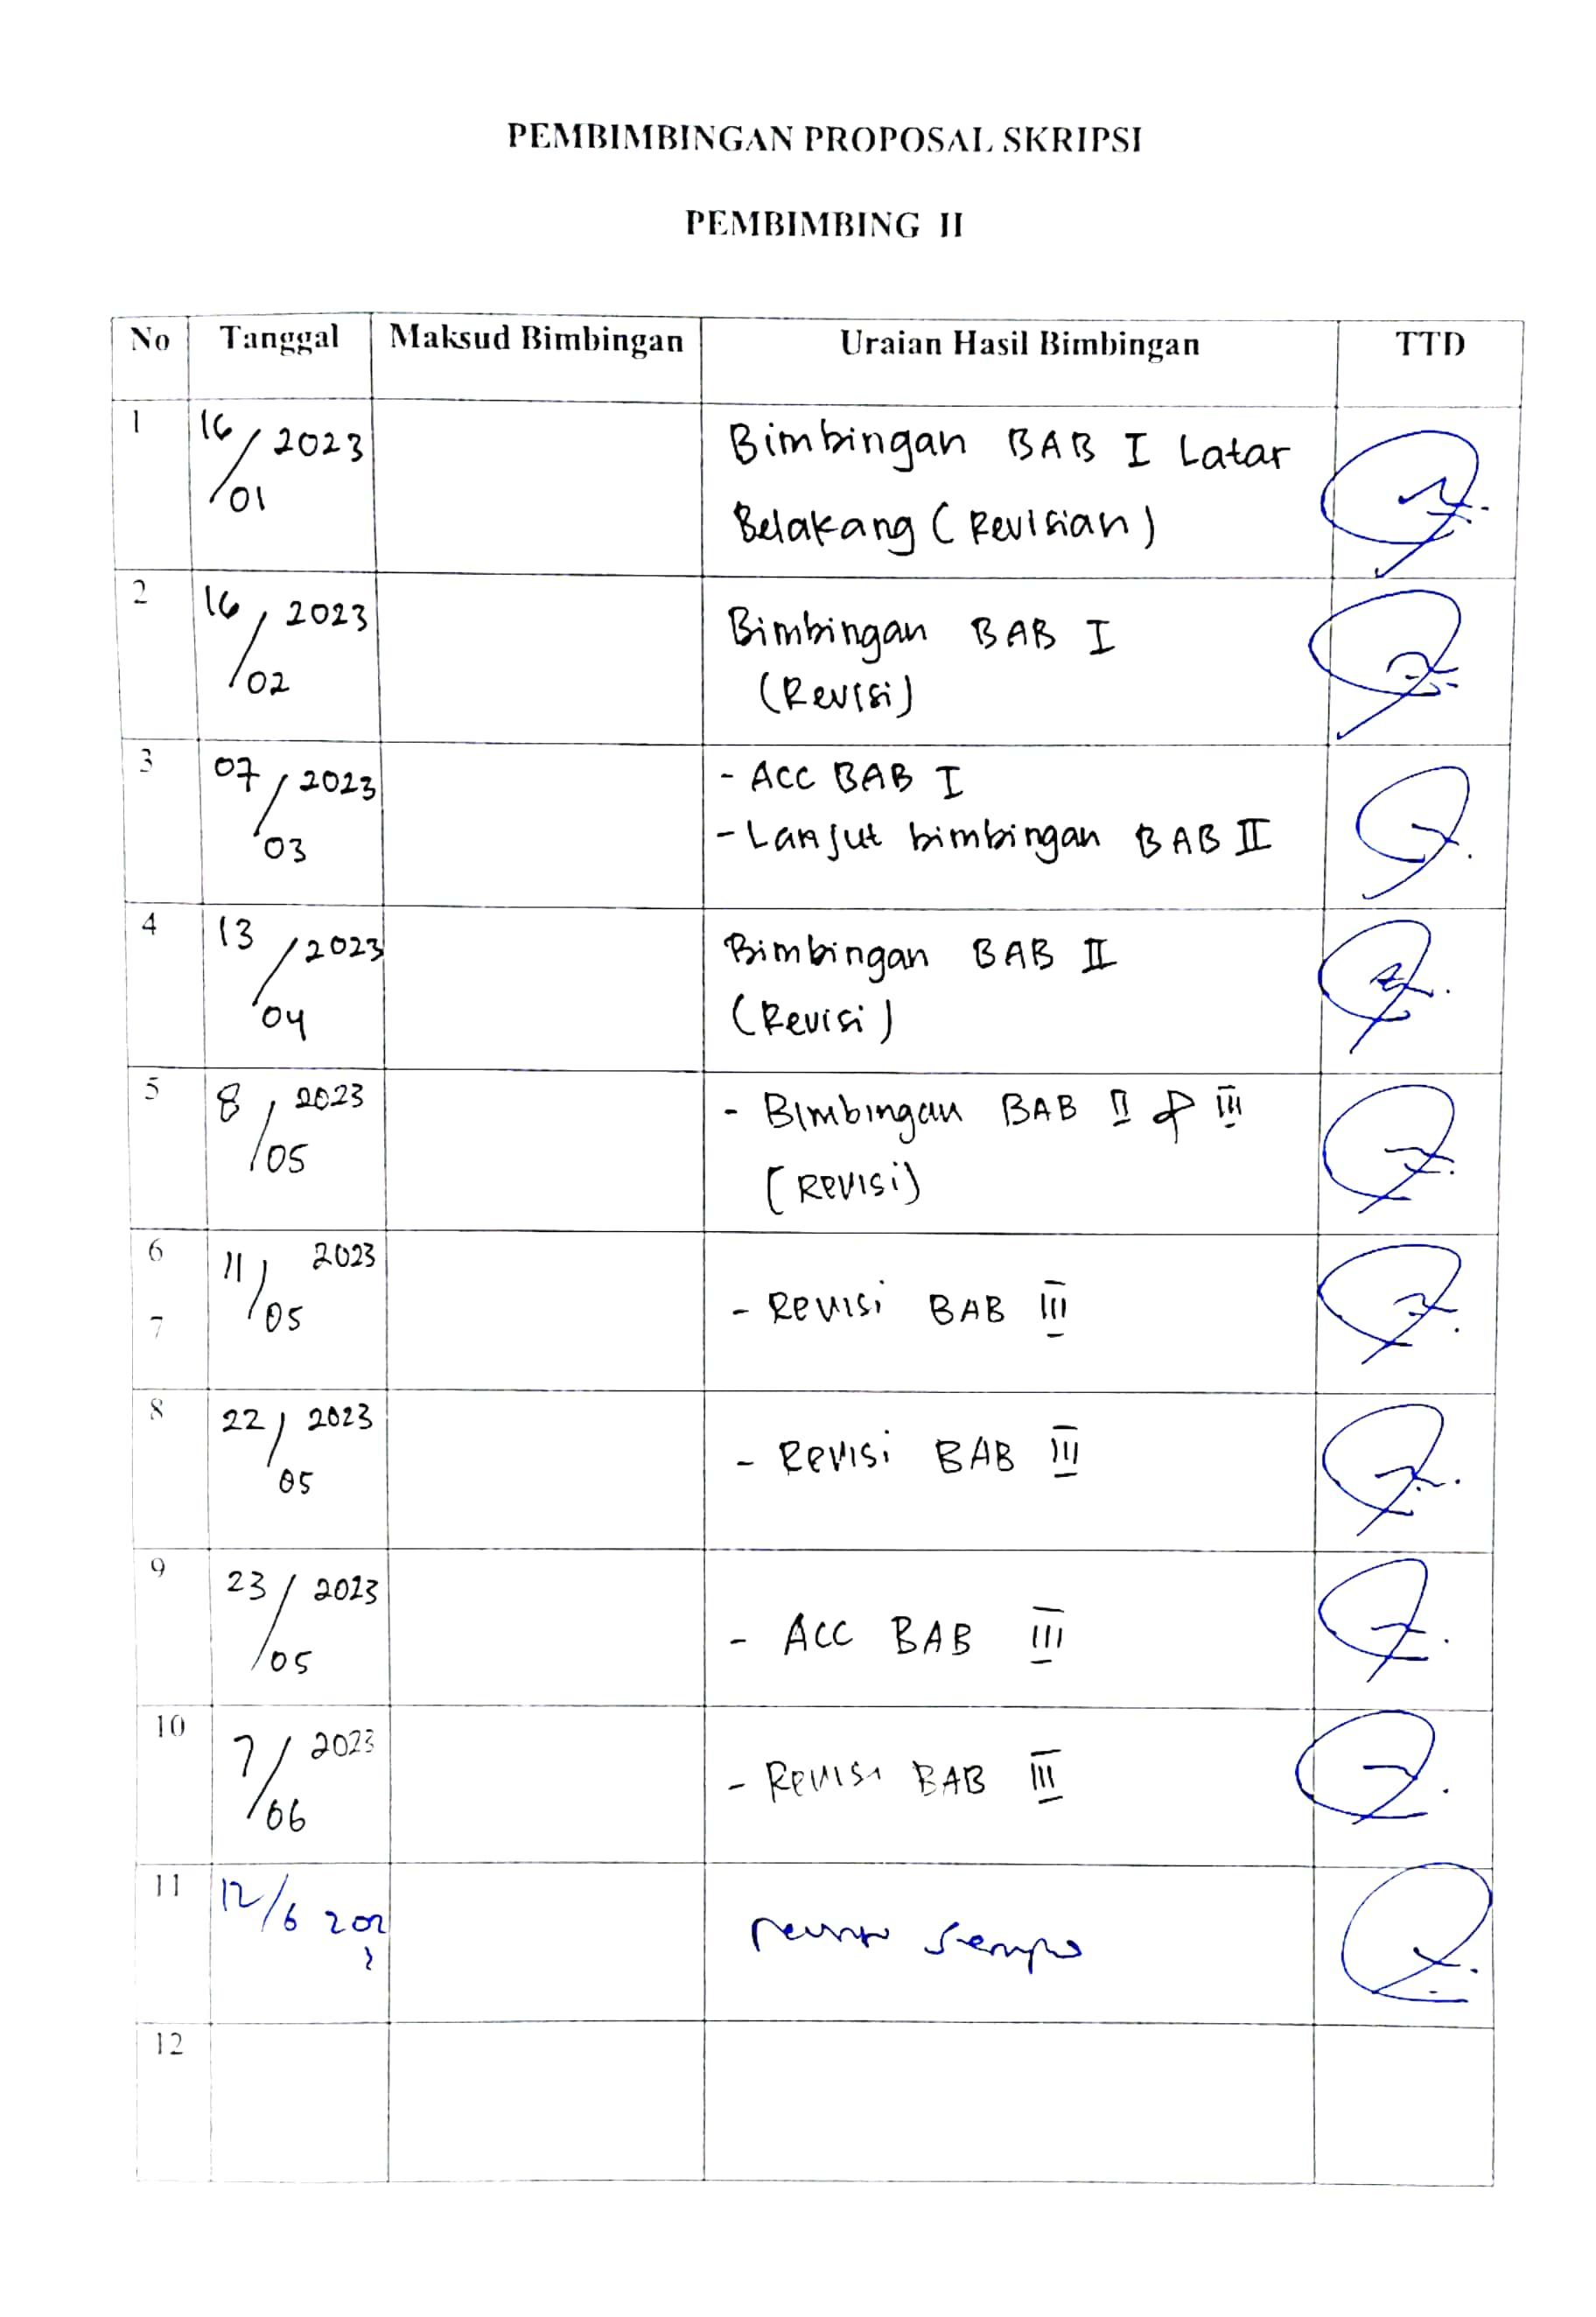 PEMBIMBINGAN PROPOSAL SKRIPSI
PEMBIMBING II
No Tanggal Maksud Bimbingan Uraian Hasil Bimbingan TTD
1 16/01 2023 Bimbingan BAB I Latar
Belakang (Revisian)
2 16/02 2023 Bimbingan BAB I
(Revisi)
3 07/03 2023 - ACC BAB I
- Lanjut bimbingan BAB II
4 13/04 2023 Bimbingan BAB II
(Revisi)
5 8/05 2023 - Bimbingan BAB II & III
(Revisi)
6 11/05 2023
7 - Revisi BAB III
8 22/05 2023 - Revisi BAB III
9 23/05 2023 - ACC BAB III
10 7/06 2023 - Revisi BAB III
11 12/6 2023
12